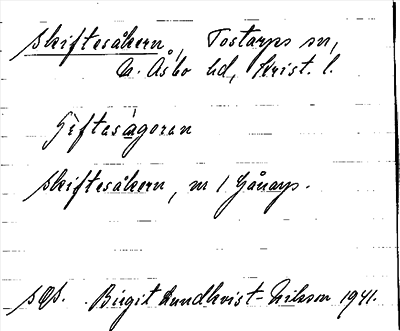 Skiftesåkern, Tostarps sn,
N. Åsbo hd, Krist. l.
Skiftesåkern, nr 1 Gånarp.
Birgit Lundkvist-Nilsson 1941.